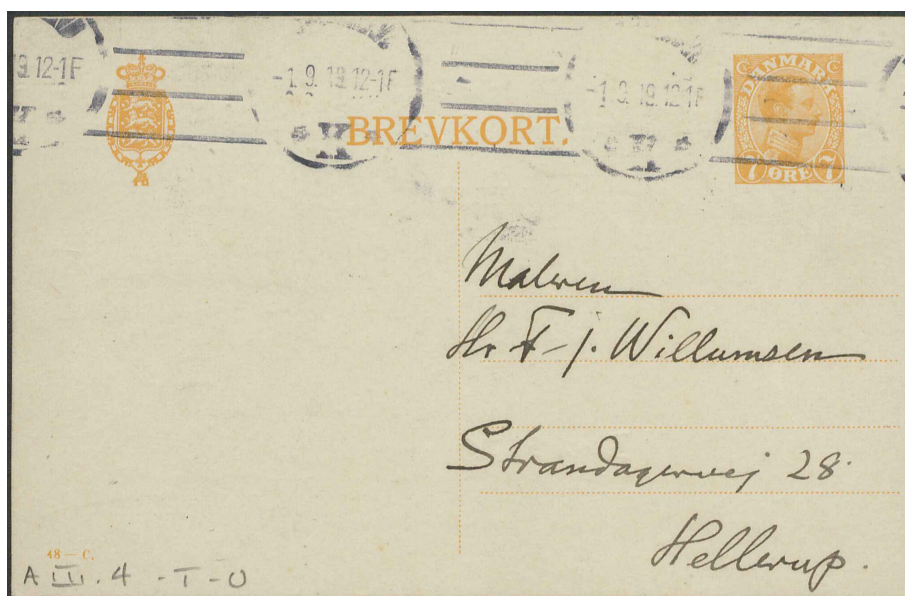 9. 12-1F
-1.9.19.12-1F
-1.9.19.12-1F
K
K
BREVKORT.
DANMARK
7 ØRE 7
Maleren
Hr F-J. Willumsen
Strandagervej 28.
Hellerup.
48 — C.
A III. 4 - T - U